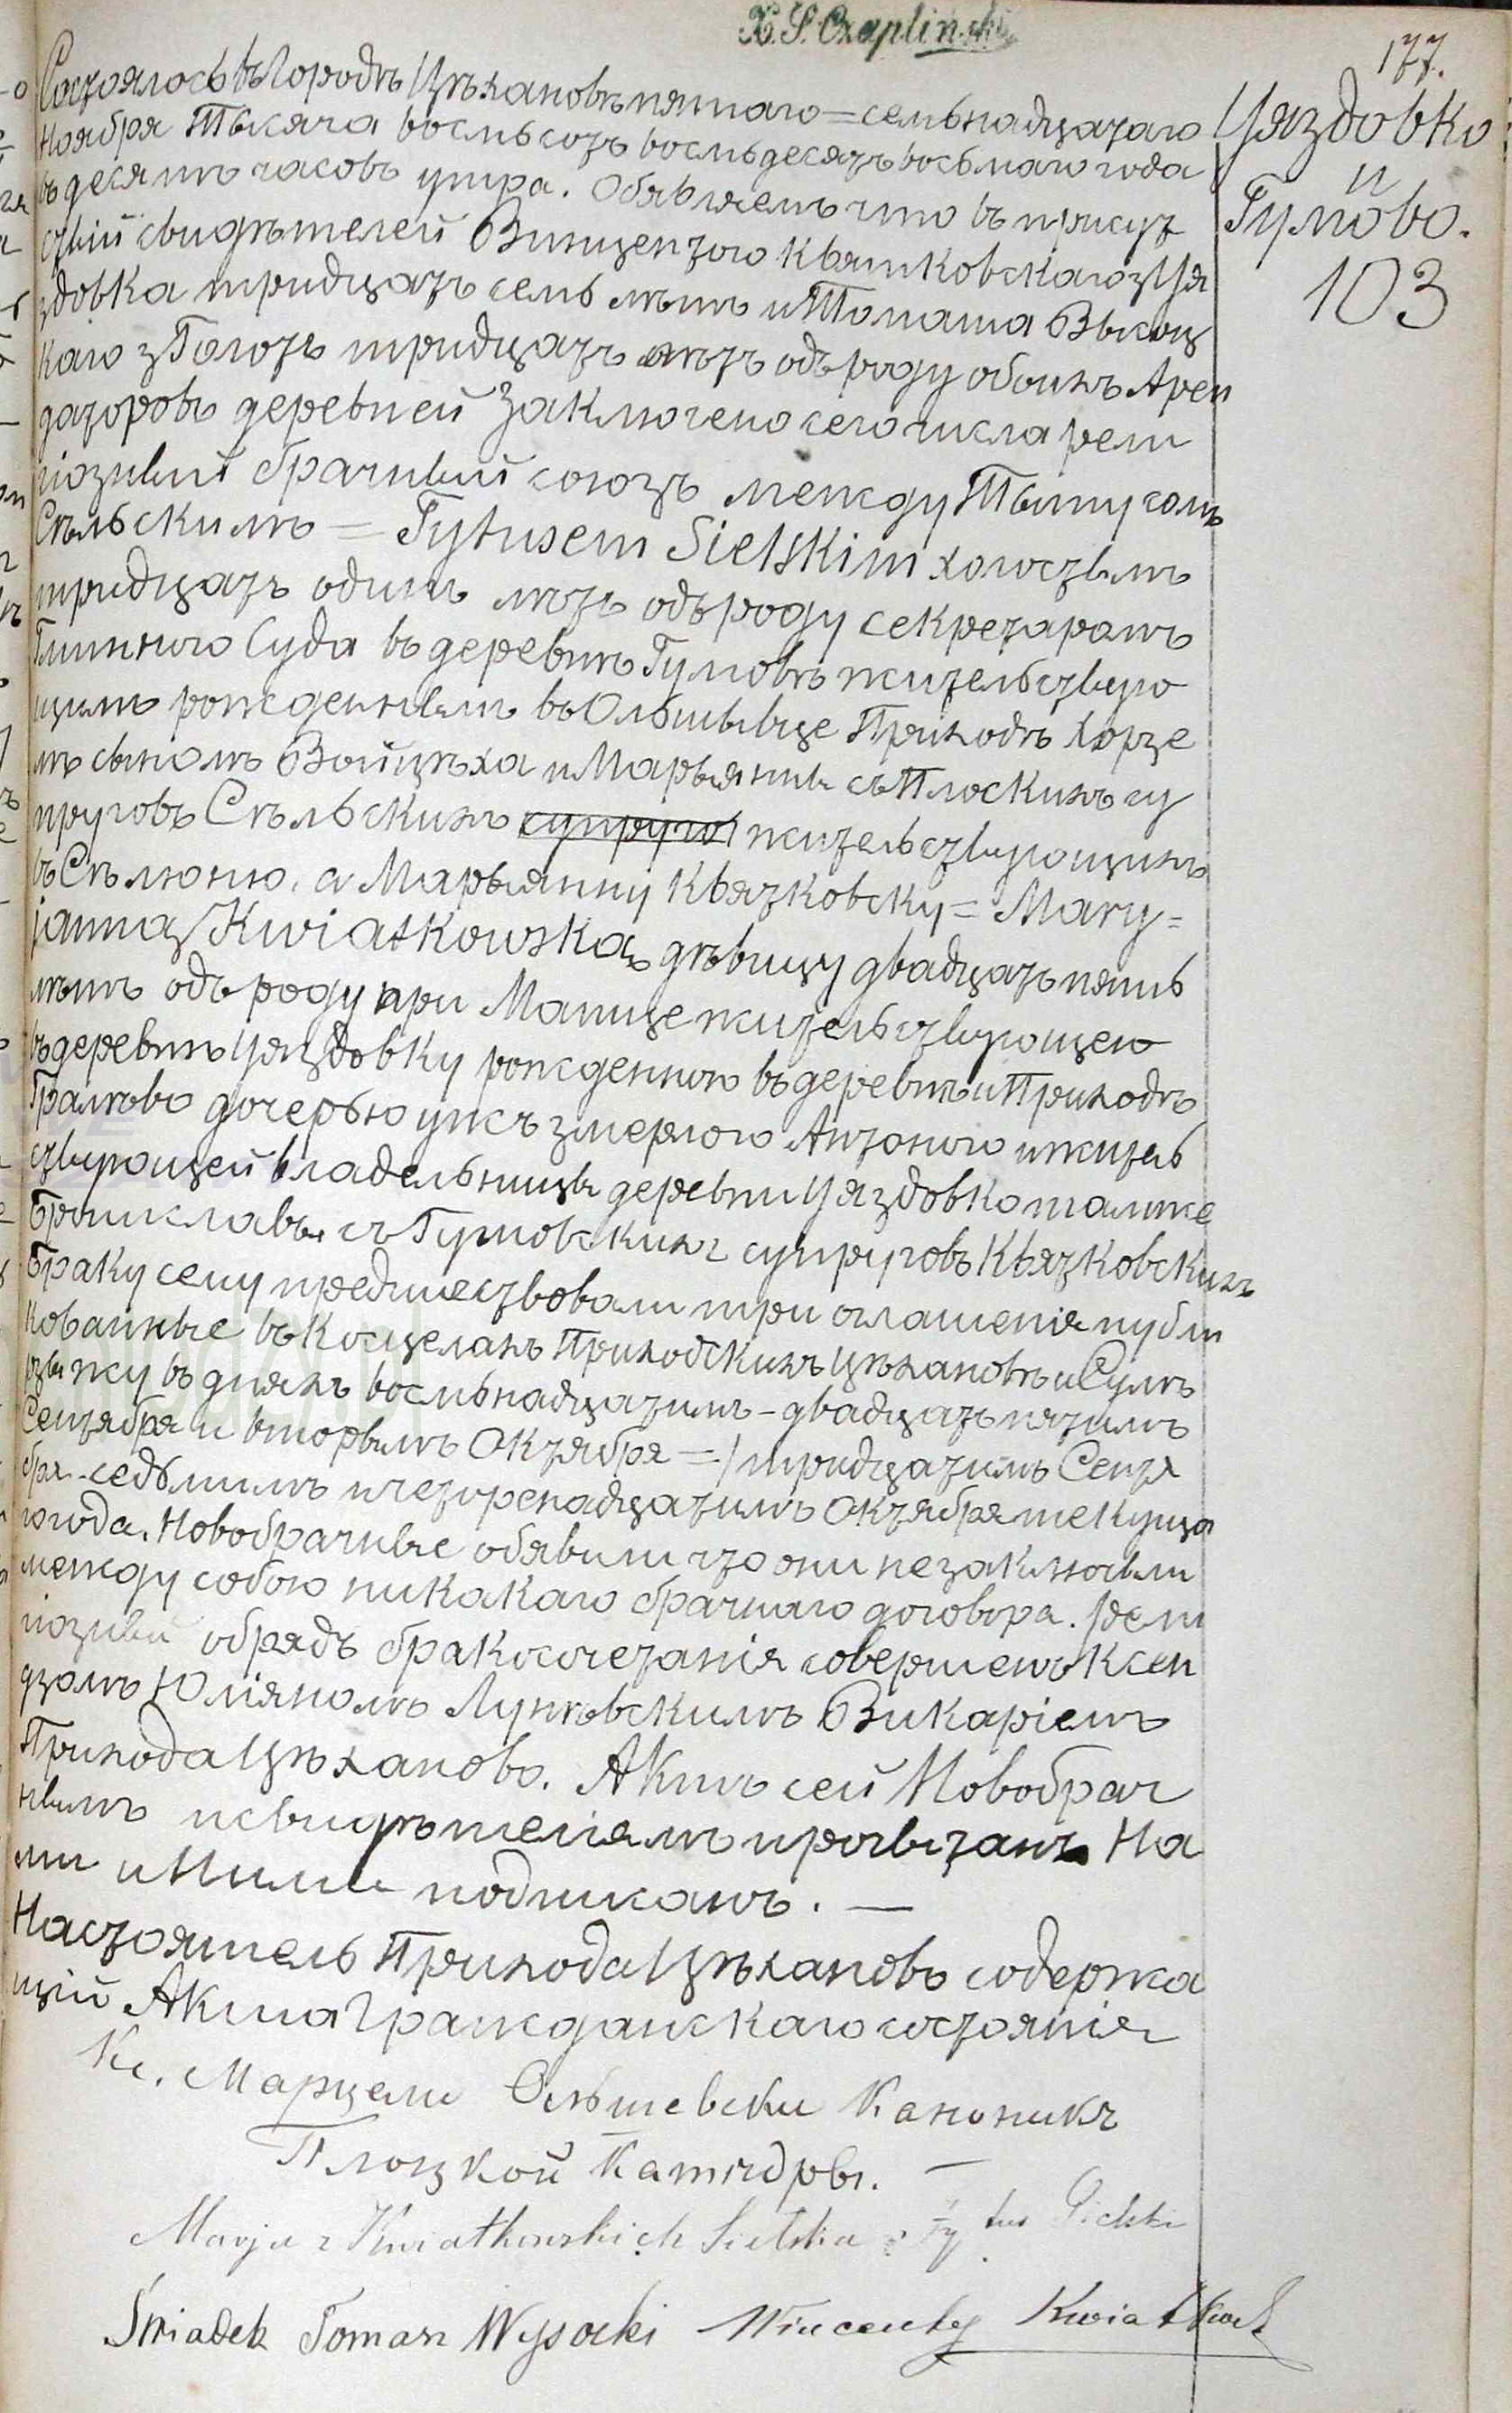 X. S. Czapliński
177.
Уяздовко
и
Гумово.
103
Состоялось въ Городѣ Цѣхановѣ пятаго = семьнадцатаго
Ноября Тысяча восмьсотъ восмьдесятъ восьмаго года
въ десять часовъ утра. Обявляемъ что въ присут
ствiи свидѣтелей Винцентого Квятковскаго з Уя
здовка тридцать семь лѣтъ и Томаша Высоц
каго з Голотъ тридцать лѣтъ одъ роду обоихъ Арен
даторовъ деревней Заключено сего числа рели
гiозный брачный союзъ между Тытусомъ
Сѣльскимъ = Tytusem Sielskim холостымъ
тридцать одинъ лѣтъ одъ роду секретаромъ
Гминного Суда въ деревнѣ Гумовѣ жительствую
щимъ рожденнымъ въ Ольшывце Приходѣ Хорże
лѣ сыномъ Войцѣха и Марьянны съ Плоскихъ су
пруговъ Сѣльскихъ супруго жительствующихъ
въ Сѣлюню, а Марьянну Квятковску = Mary=
janną Kwiatkowską дѣвицу двадцать пять
лѣтъ одъ роду при Матце жительствующею
въ деревнѣ Уяздовку рожденною въ деревнѣ и Приходѣ
Граłево дочерью ужъ змерлого Антоного и житель
ствующей владельницы деревни Уяздовко тамже
Брониславы съ Гумовскихъ супруговъ Квятковскихъ
Браку сему предшествовали три оглашенiя публи
кованные въ Косцелахъ Приходскихъ Цѣхановѣ и Сулѣ
ржыжу въ дняхъ восмьнадцатымъ - двадцать пятымъ
Сентября и вторымъ Октября =/ тридцатымъ Сентя
бря - седьмимъ и четоренадцатимъ Октября текуща
го года. Новобрачные обявили что они незаключили
между собою никакаго брачнаго договора. Рели
гiозный обрядъ бракосочетанiя совершенъ Ксен
дзомъ Юлiяномъ Лунѣвскимъ Викарiемъ
Прихода Цѣхановъ. Актъ сей Новобрач
нымъ и свидѣтелямъ прочытанъ На
ми и Ними подписанъ. —
Настоятель Прихода Цѣхановъ содержа
щiй Акта Гражданскаго состоянiя
Кс. Марцели Ольшевски Каноникъ
Плоцкой Катедры. —
Marja z Kwiatkowskich Sielska Tytus Sielski
Świadek Tomasz Wysocki Wincenty Kwiatkowski